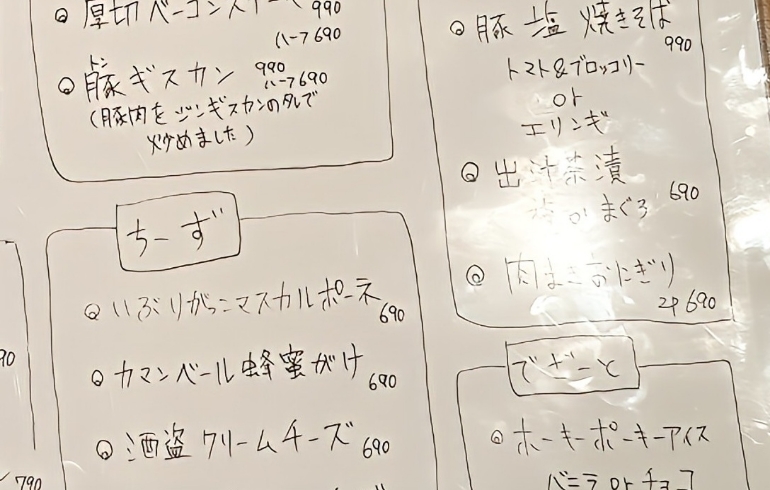 厚切ベーコンステーキ 990
ハーフ690
豚ギスカン 990
トン
ハーフ690
(豚肉をジンギスカンのタレで
炒めました)
ちーず
いぶりがっこマスカルポーネ 690
カマンベール蜂蜜がけ 690
酒盗クリームチーズ 690
90
790
豚塩焼きそば 990
トマト&ブロッコリー
or
エリンギ
出汁茶漬 690
まぐろ
肉まきおにぎり
2P 690
でざーと
ホーキーポーキーアイス
バニラorチョコ